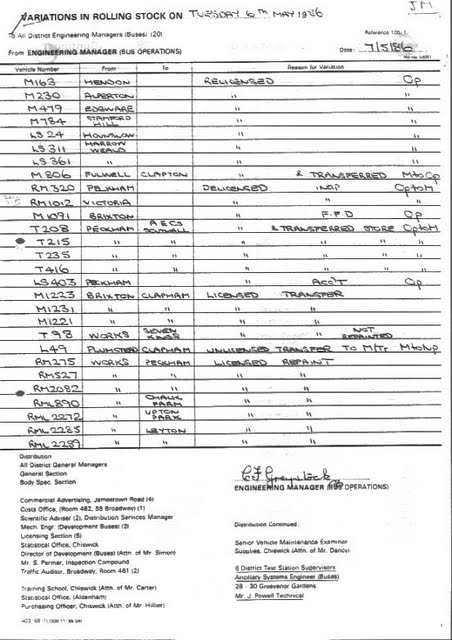 JM
VARIATIONS IN ROLLING STOCK ON TUESDAY 6TH MAY 1986
To All District Engineering Managers (Buses) (20)
From ENGINEERING MANAGER (BUS OPERATIONS) Date: 7/5/86
Vehicle Number From To Reason for Variation
M163 HENDON RELICENSED Op
M230 ALPERTON " "
M479 EDGWARE " "
M784 STAMFORD HILL " "
LS24 HOUNSLOW " "
LS311 HARROW WEALD " "
LS361 " " "
M806 FULWELL CLAPTON " & TRANSFERRED M to Op
RM320 PECKHAM DELICENSED INSP Op to M
RM1012 VICTORIA " " "
M1091 BRIXTON " F.F.D Op
T208 PECKHAM A E C S SOUTHALL " & TRANSFERRED STORE Op to M
T215 " " " " " "
T235 " " " " " "
T416 " " " " " "
LS403 PECKHAM " ACC'T Op
M1223 BRIXTON CLAPHAM LICENSED TRANSFER
M1231 " " " "
M1221 " " " "
T98 WORKS SEVEN KINGS " NOT REPAINTED
L49 PLUMSTEAD CLAPHAM UNLICENSED TRANSFER TO M/Tr
RM275 WORKS PECKHAM LICENSED REPAINT
RM527 " " " "
RM2082 " " " "
RML890 " CHALK FARM " "
RML2272 " UPTON PARK " "
RML2285 " LEYTON " "
RML2259 " " " "
Distribution
All District General Managers
General Section
Body Spec. Section
ENGINEERING MANAGER (BUS OPERATIONS)
Commercial Advertising, Jamestown Road (4)
Costs Office, (Room 482, 55 Broadway) (1)
Scientific Adviser (2), Distribution Services Manager
Mech. Engr. (Development Buses) (3)
Licensing Section (5)
Statistical Office, Chiswick
Director of Development (Buses) (Attn. of Mr. Simon)
Mr. S. Parmar, Inspection Compound
Traffic Auditor, Broadway, Room 481 (2)
Training School, Chiswick (Attn. of Mr. Carter)
Statistical Office, (Aldenham)
Purchasing Officer, Chiswick (Attn. of Mr. Hillier)
Distribution Continued:
Senior Vehicle Maintenance Examiner
Supplies, Chiswick (Attn. of Mr. Dancy)
6 District Test Station Supervisors
Ancillary Systems Engineer (Buses)
28 - 30 Grosvenor Gardens
Mr. J. Powell Technical